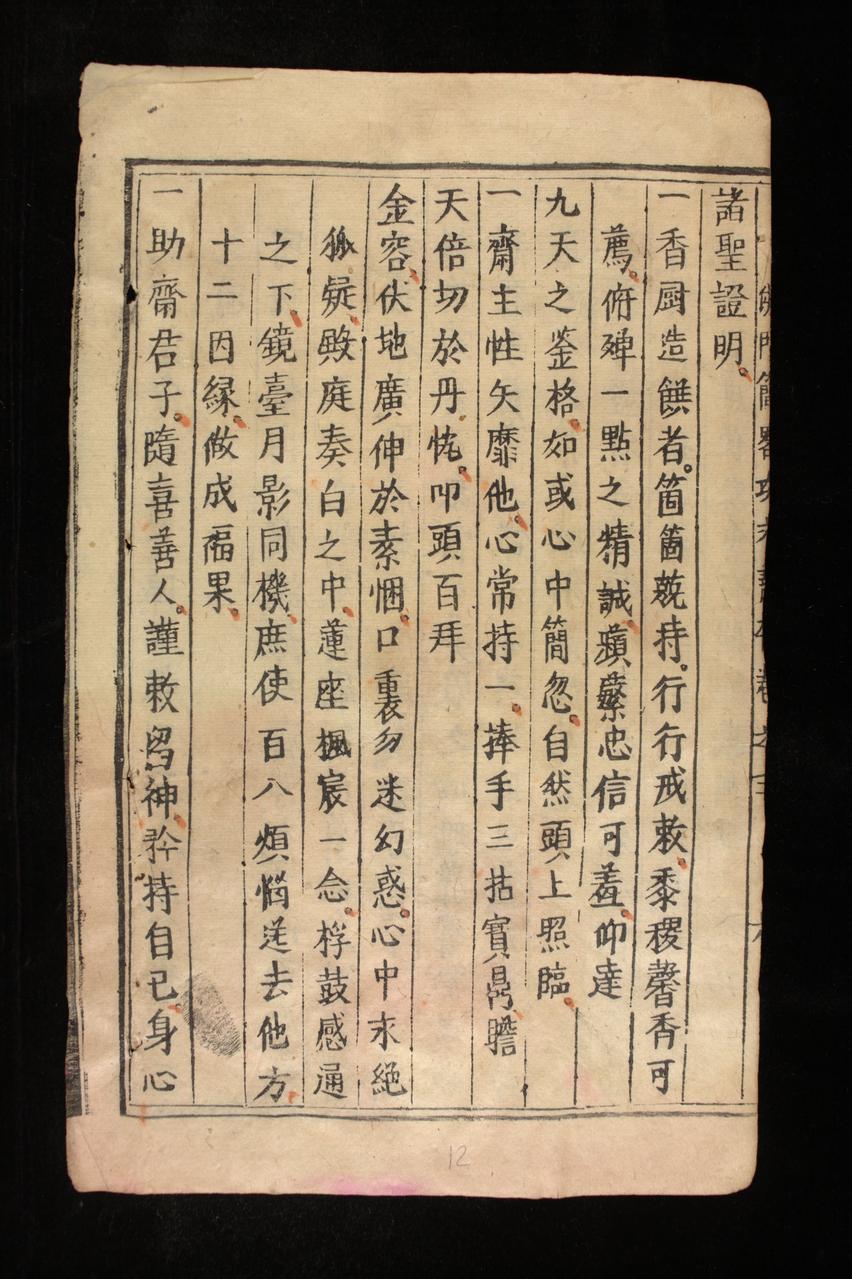 諸聖證明
一香厨造饌者箇箇兢持行行戒敕黍稷馨香可
薦俯殫一點之精誠蘋蘩忠信可羞仰達
九天之鉴格如或心中簡忽自然頭上照臨
一齋主性矢靡他心常持一捧手三拈寶鼎瞻
天倍切於丹忱叩頭百拜
金容伏地廣伸於素悃口裏勿迷幻惑心中永絶
狐疑殿庭奏白之中蓮座楓宸一念桴鼓感通
之下鏡臺月影同機庶使百八煩惱送去他方
十二因緣做成福果
一助齋君子隨喜善人謹敕畄神矜持自己身心